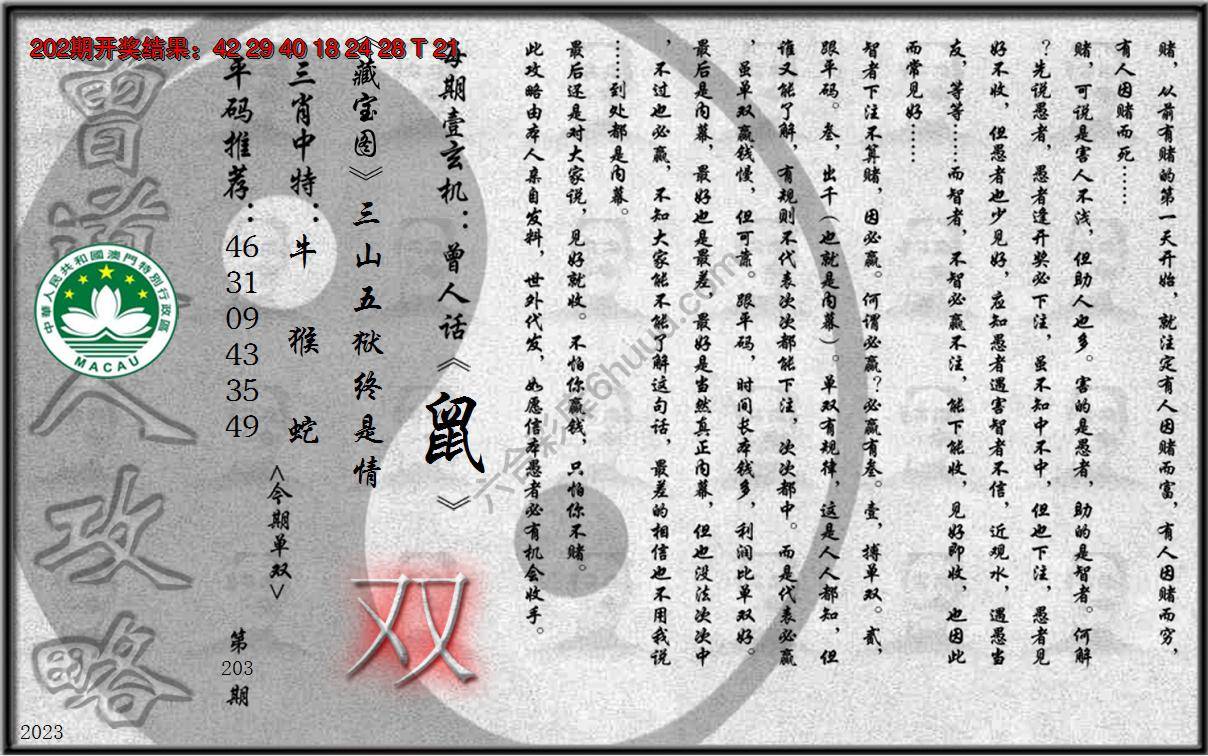 202期开奖结果：42 29 40 18 24 28 T 21
赌，从前有赌的第一天开始，就注定有人因赌而富，有人因赌而穷，
有人因赌而死……
赌，可说是害人不浅，但助人也多。害的是愚者，助的是智者。何解
？先说愚者，愚者逢开奖必下注，虽不知中不中，但也下注，愚者见
好不收，但愚者也少见好，应知愚者遇害智者不信，近观水，遇愚当
友，等等……而智者，不智必赢不注，能下能收，见好即收，也因此
而常见好……
智者下注不算赌，因必赢。何谓必赢？必赢有叁。壹，搏单双。贰，
跟平码。叁，出千（也就是内幕）。单双有规律，这是人人都知，但
谁又能了解，有规则不代表次次都能下注，次次都中。而是代表必赢
，虽单双赢钱慢，但可靠。跟平码，时间长本钱多，利润比单双好。
最后是内幕，最好也是最差，最好是当然真正内幕，但也没法次次中
，不过也必赢，不知大家能不能了解这句话，最差的相信也不用我说
……到处都是内幕。
最后还是对大家说，见好就收。不怕你赢钱，只怕你不赌。
此攻略由本人亲自发料，世外代发，如愿信本愚者必有机会收手。
每期壹玄机：曾人话《鼠》
《藏宝图》三山五狱终是情
双
三肖中特：牛 猴 蛇
<今期单双>
平码推荐：46 31 09 43 35 49
第203期
曾道人攻略
中華人民共和國澳門特別行政區
MACAU
2023